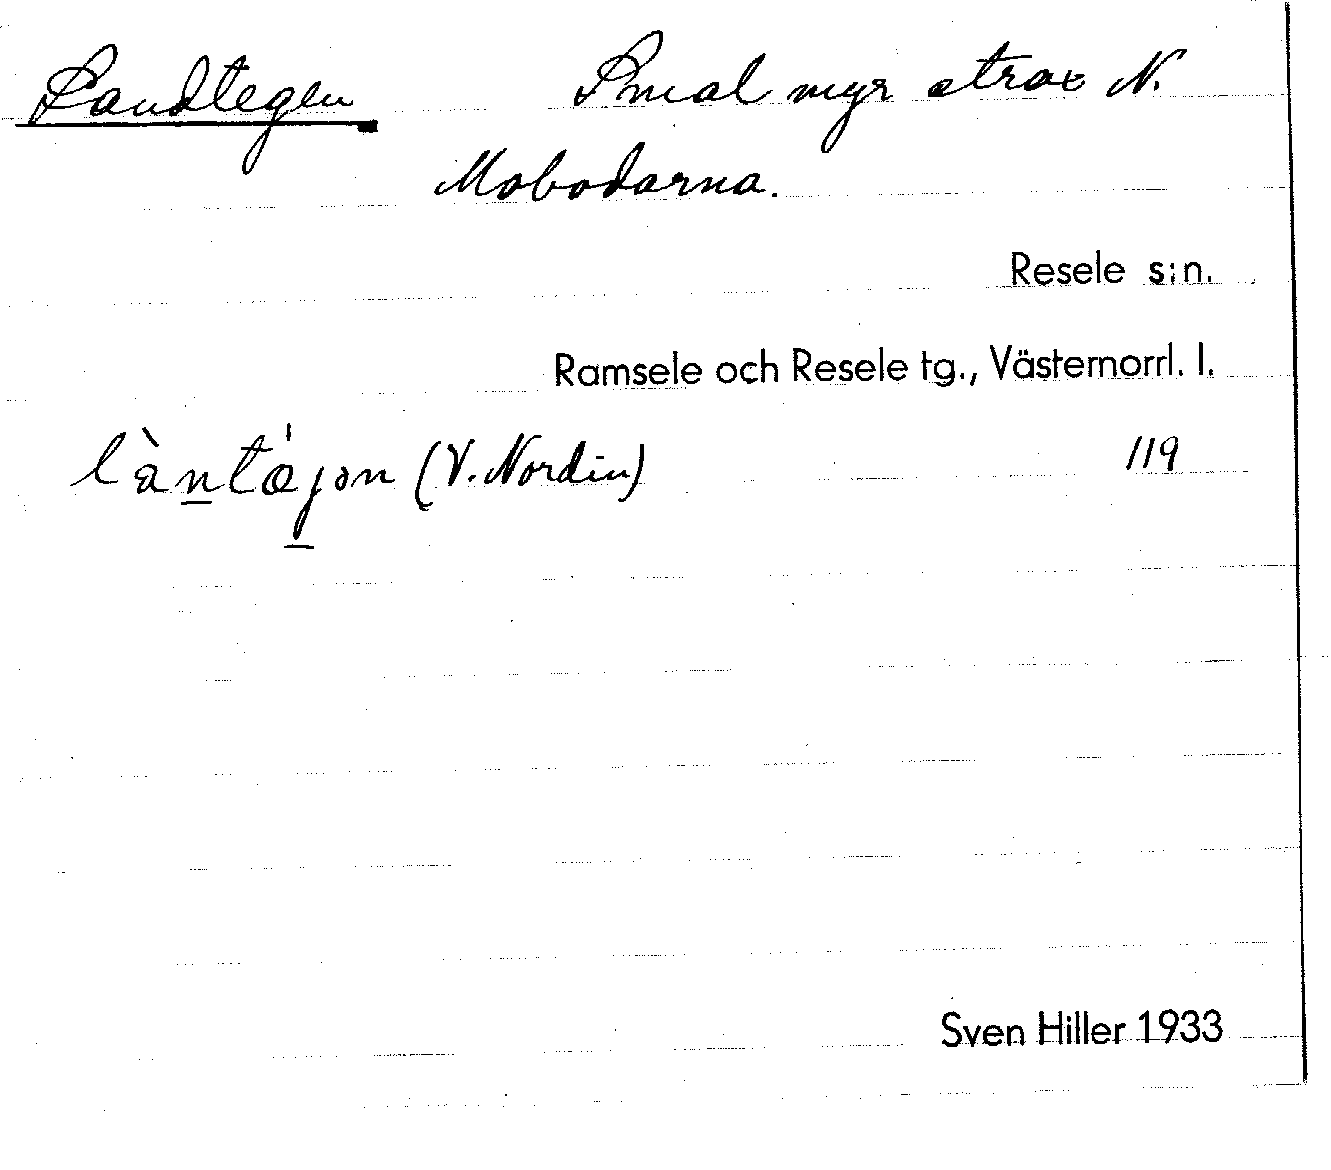 Landtegen Smal myr strax N.
Mobodarna.
Resele s:n.
Ramsele och Resele tg., Västernorrl. l.
làntæ̍jən (V. Nordin) 119
Sven Hiller 1933